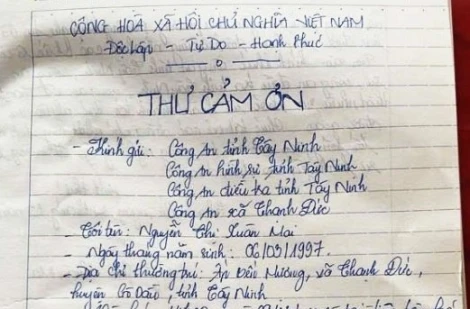 CỘNG HOÀ XÃ HỘI CHỦ NGHĨA VIỆT NAM
Độc lập - Tự Do - Hạnh Phúc
THƯ CẢM ƠN
- Kính gửi: Công An tỉnh Tây Ninh
Công An hình sự tỉnh Tây Ninh
Công An điều tra tỉnh Tây Ninh
Công An xã Thạnh Đức
- Tôi tên: Nguyễn Thị Xuân Mai
- Ngày tháng năm sinh: 06/03/1997.
- Địa chỉ thường trú: Ấp Bến Mương, xã Thạnh Đức,
huyện Gò Dầu, tỉnh Tây Ninh